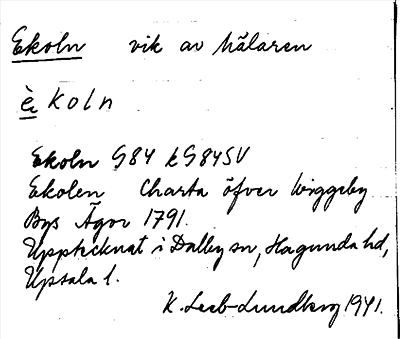 Ekoln vik av Mälaren
è koln
Ekoln G84 kG84SV
Ekolen Charta öfver Wiggeby
Bys Ägor 1791.
Upptecknat i Dalby sn, Hagunda hd,
Upsala l.
K. Leab-Lundberg 1941.